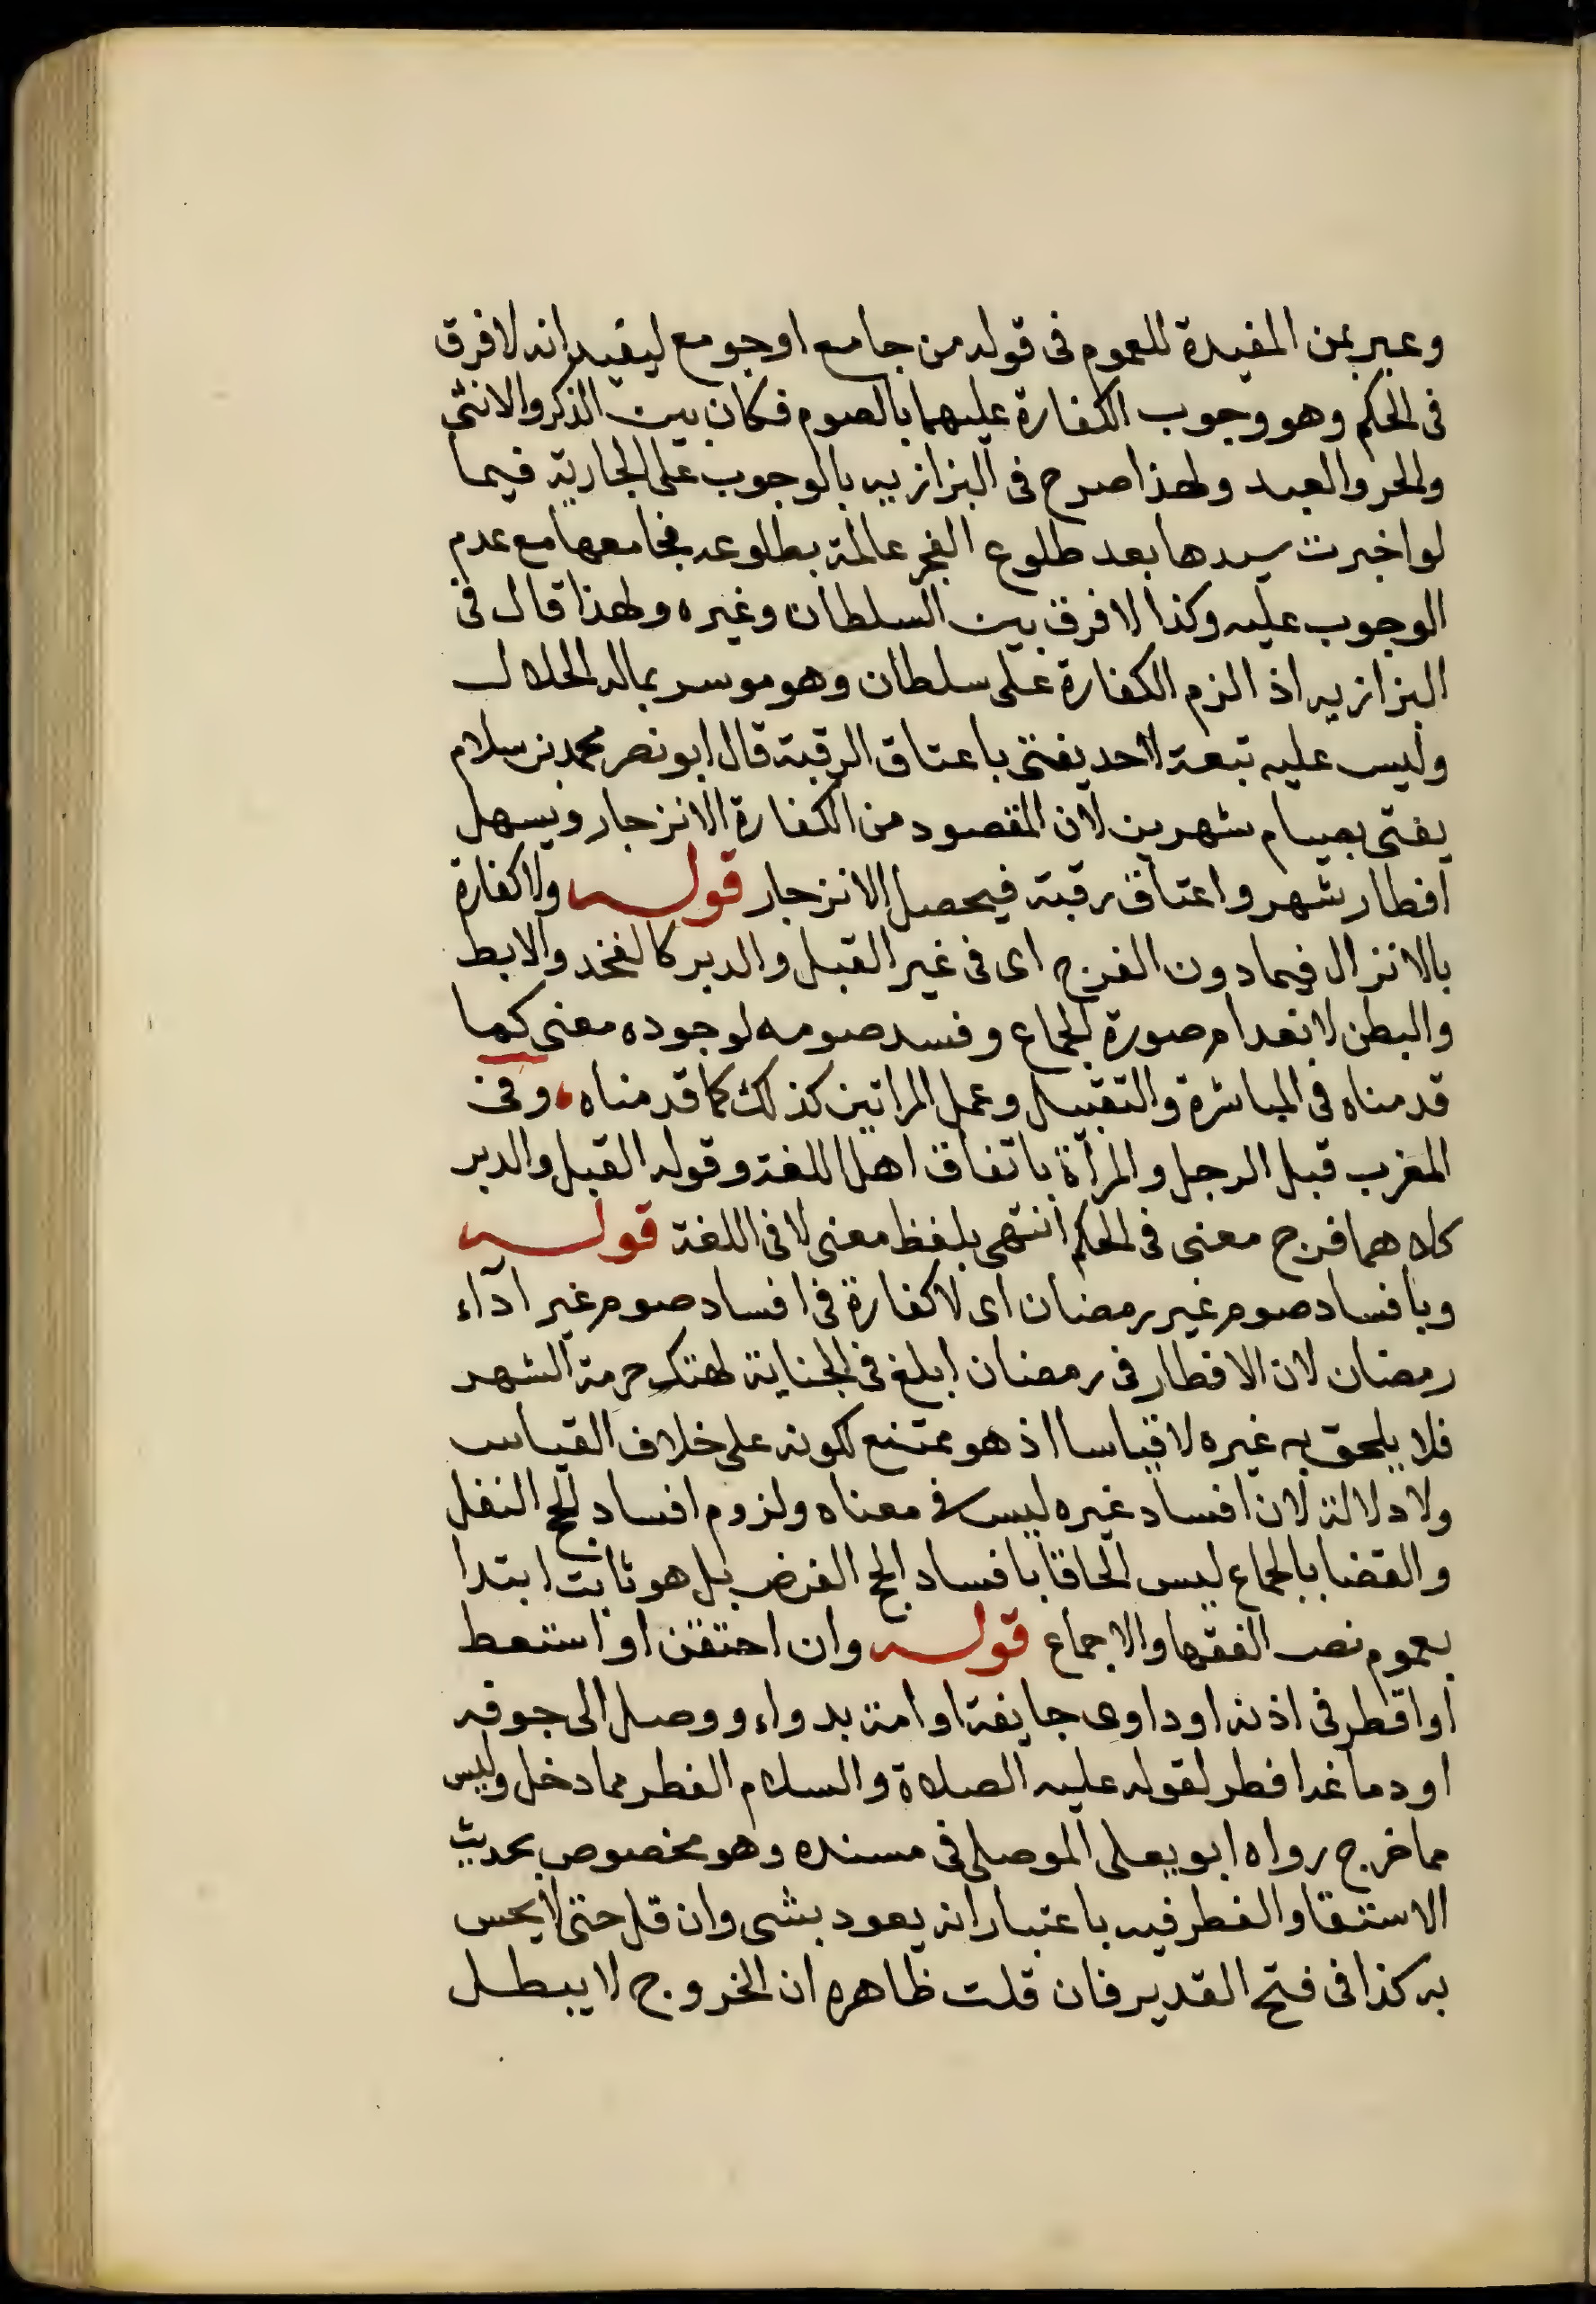 وعبر بمن المفيدة للعموم فى قوله من جامع او جومع ليفيد انه لا فرق
فى الحكم وهو وجوب الكفارة عليهما بالصوم فكان بين الذكر والانثى
والحر والعبد ولهذا صرح فى البزازيه بالوجوب على الجارية فيما
لو اخبرت سيدها بعد طلوع الفجر عالمة بطلوعه فجامعها مع عدم
الوجوب عليه وكذا لا فرق بين السلطان وغيره ولهذا قال فى
البزازيه اذ الزم الكفارة على سلطان وهو موسر بماله الحلال
وليس عليه تبعة لاحد يفتى باعتاق الرقبة قال ابو نصر محمد بن سلام
يفتى بصيام شهرين لان المقصود من الكفارة الانزجار ويسهل
افطار شهر واعتاق رقبة فيحصل الانزجار قوله ولا كفارة
بالانزال فيما دون الفرج اى فى غير القبل والدبر كالفخذ والابط
والبطن لانعدام صورة الجماع وفسد صومه لوجوده معنى كما
قدمناه فى المباشرة والتقبيل وعمل المراتين كذلك كما قدمناه، وفى
المغرب قبل الرجل والمرأة باتفاق اهل اللغة وقوله القبل والدبر
كلاهما فرج معنى فى الحكم انتهى بلفظ معنى لا فى اللغة قوله
وبافساد صوم غير رمضان اى لا كفارة فى افساد صوم غير اداء
رمضان لان الافطار فى رمضان ابلغ فى الجناية لهتك حرمة الشهر
فلا يلحق به غيره لا قياسا اذ هو ممتنع لكونه على خلاف القياس
ولا دلالة لان افساد غيره ليس فى معناه ولزوم افساد الحج النفل
والقضا بالجماع ليس الحاقا بافساد الحج الفرض بل هو ثابت ابتدا
بعموم نص الفقها والاجماع قوله وان احتقن او استعط
او اقطر فى اذنه او داوى جايفة او امة بدواء ووصل الى جوفه
او دماغه افطر لقوله عليه الصلاة والسلام الفطر مما دخل وليس
مما خرج رواه ابو يعلى الموصلى فى مسنده وهو مخصوص بحديث
الاستقا والفطر فيه باعتبار انه يعود بشى وان قل حتى لا يحس
به كذا فى فتح القدير فان قلت ظاهره ان الخروج لا يبطل